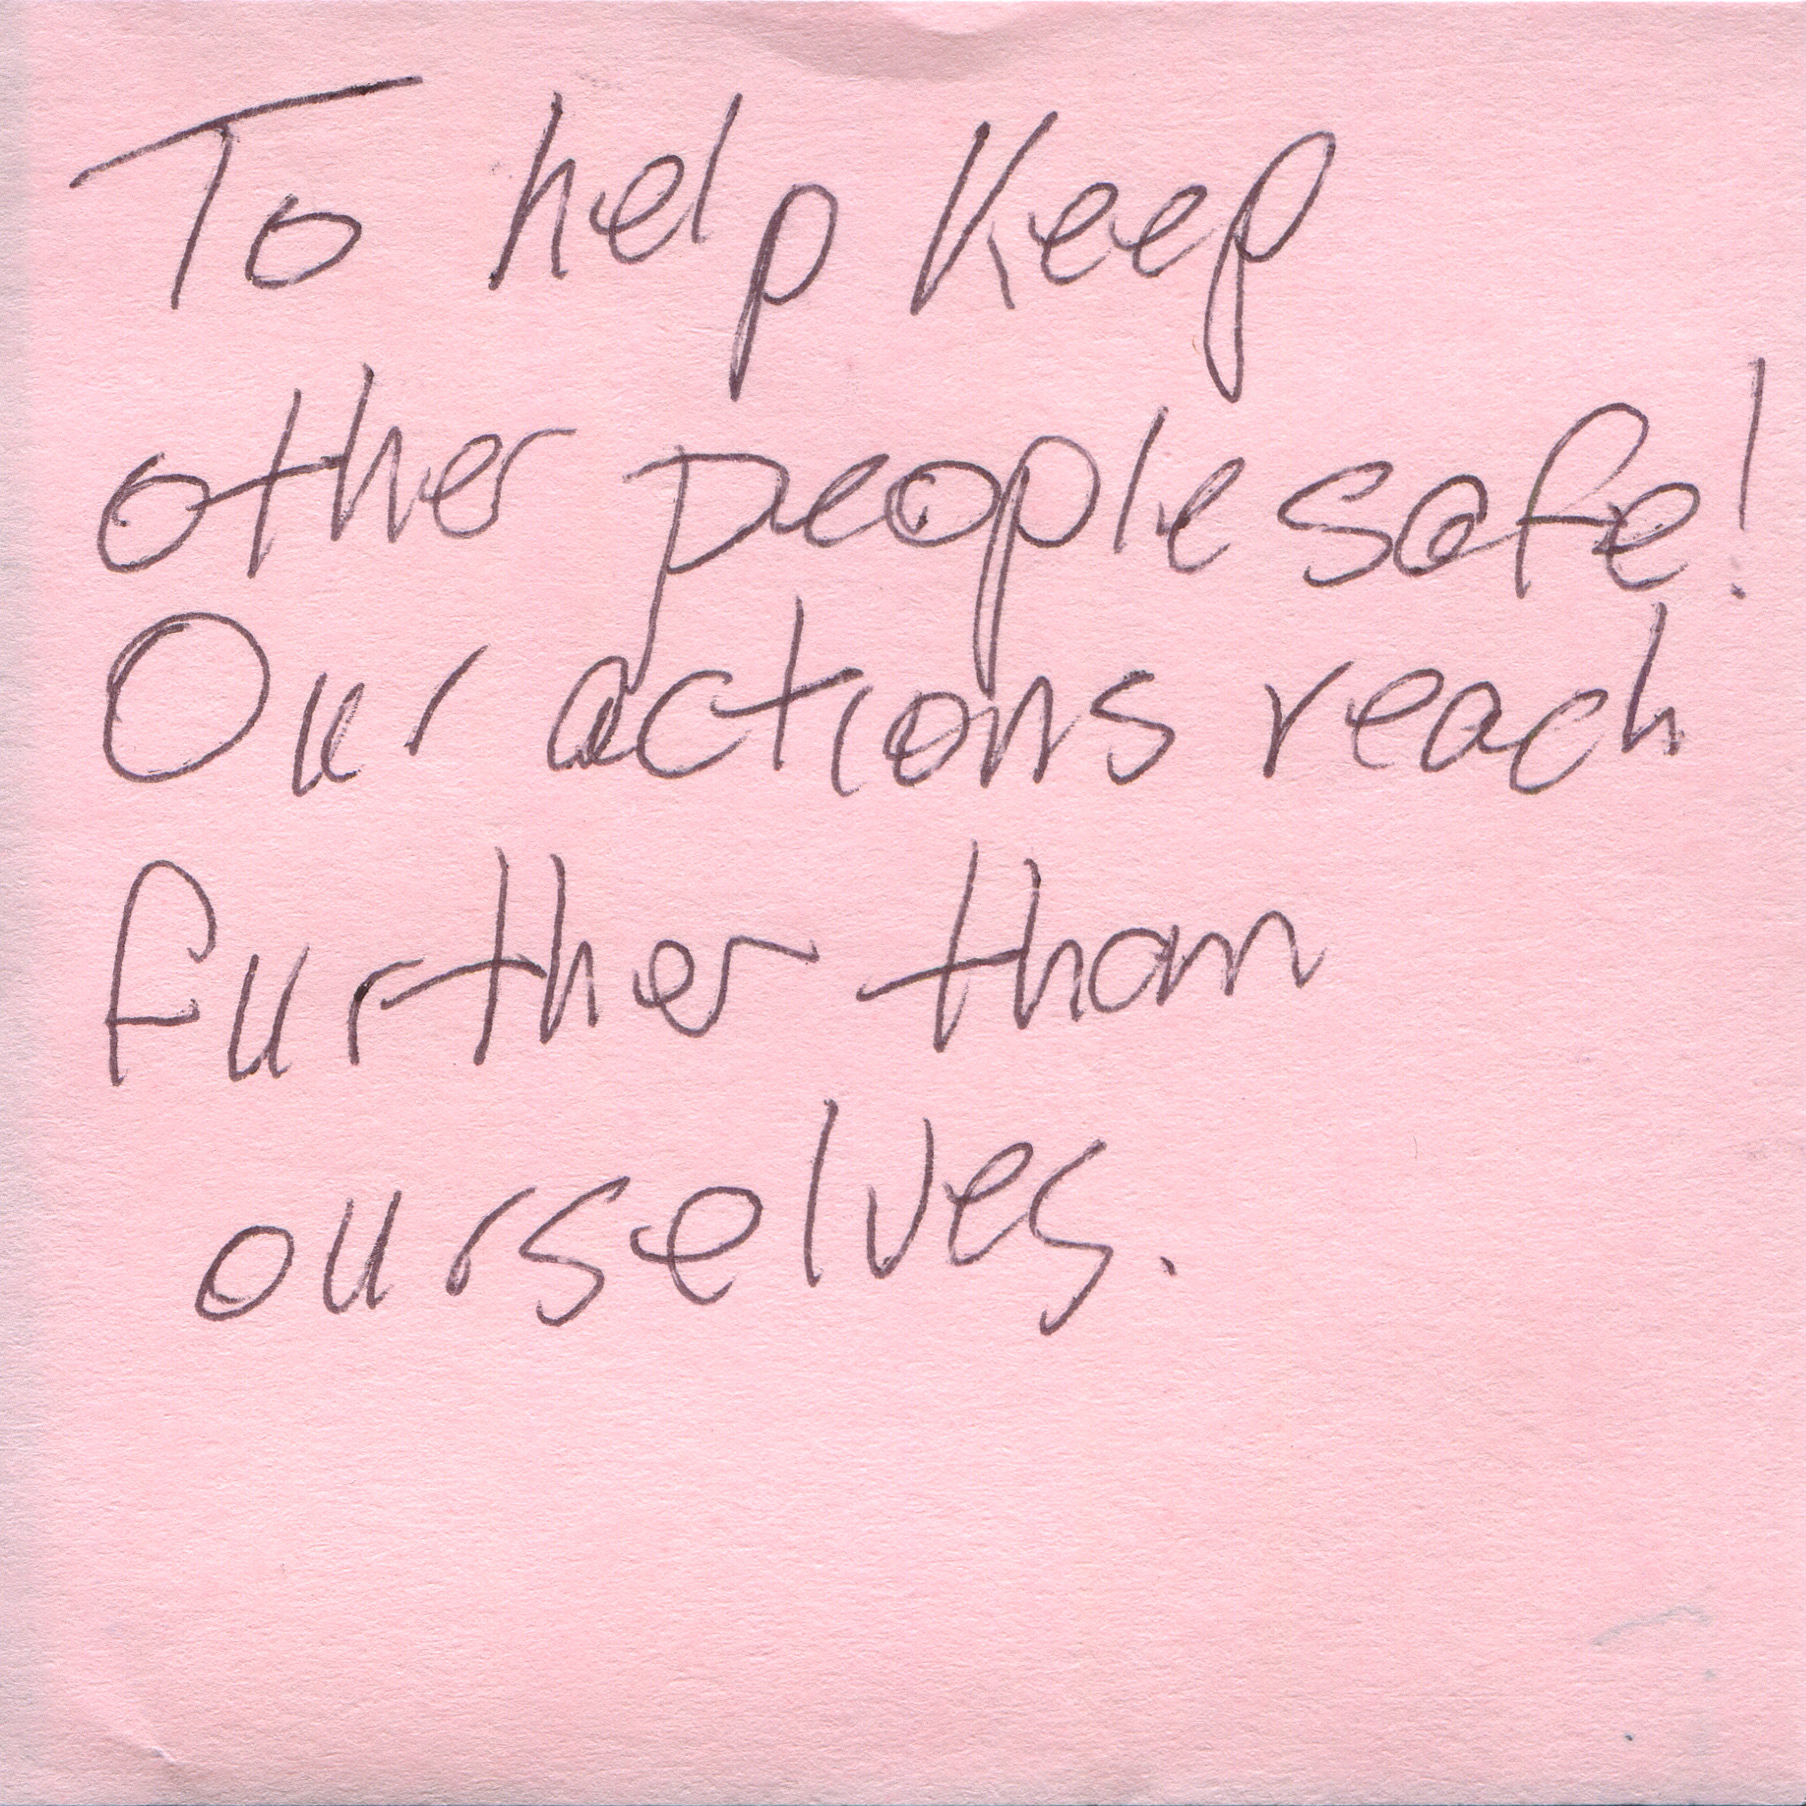 To help keep
other people safe!
Our actions reach
further than
ourselves.